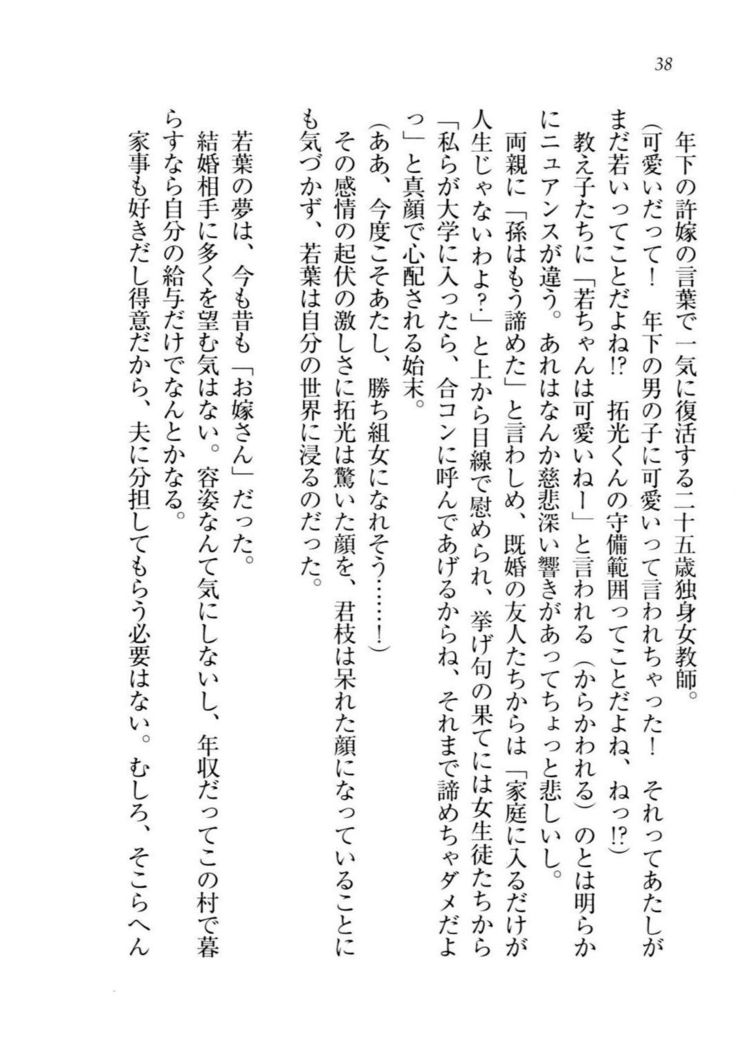 38
年下の許嫁の言葉で一気に復活する二十五歳独身女教師。
(可愛いだって！　年下の男の子に可愛いって言われちゃった！　それってあたしが
まだ若いってことだよね!?　拓光くんの守備範囲ってことだよね、ねっ!?)
教え子たちに「若ちゃんは可愛いねー」と言われる（からかわれる）のとは明らか
にニュアンスが違う。あれはなんか慈悲深い響きがあってちょっと悲しいし。
両親に「孫はもう諦めた」と言わしめ、既婚の友人たちからは「家庭に入るだけが
人生じゃないわよ？」と上から目線で慰められ、挙げ句の果てには女生徒たちから
「私らが大学に入ったら、合コンに呼んであげるからね、それまで諦めちゃダメだよ
っ」と真顔で心配される始末。
(ああ、今度こそあたし、勝ち組女になれそう……！)
その感情の起伏の激しさに拓光は驚いた顔を、君枝は呆れた顔になっていることに
も気づかず、若葉は自分の世界に浸るのだった。
若葉の夢は、今も昔も「お嫁さん」だった。
結婚相手に多くを望む気はない。容姿なんて気にしないし、年収だってこの村で暮
らすなら自分の給与だけでなんとかなる。
家事も好きだし得意だから、夫に分担してもらう必要はない。むしろ、そこらへん